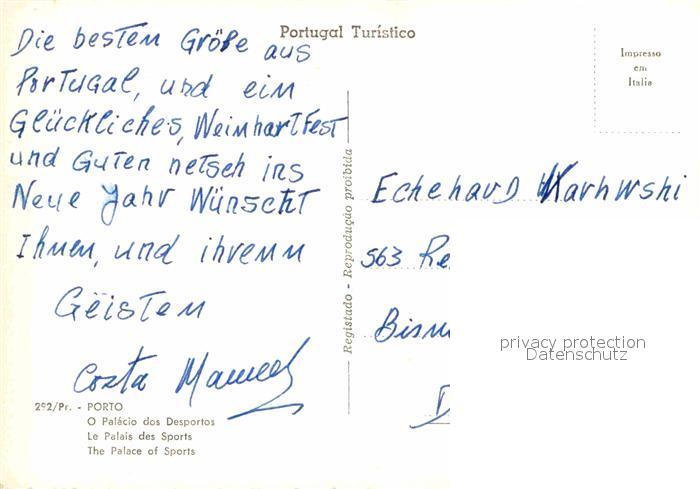 Portugal Turístico
Impresso
em
Italia
Die besten Größe aus
Portugal, und ein
Glückliches, Weinhartfest
und Guten netsch ins
Neue Jahr Wünscht
Ihnen, und ihrenn
Geisten
Costa Manuel
292/Pr. - PORTO
O Palácio dos Desportos
Le Palais des Sports
The Palace of Sports
Registado - Reprodução proibida
Echehard
563 Re
Bism
D
privacy protection
Datenschutz